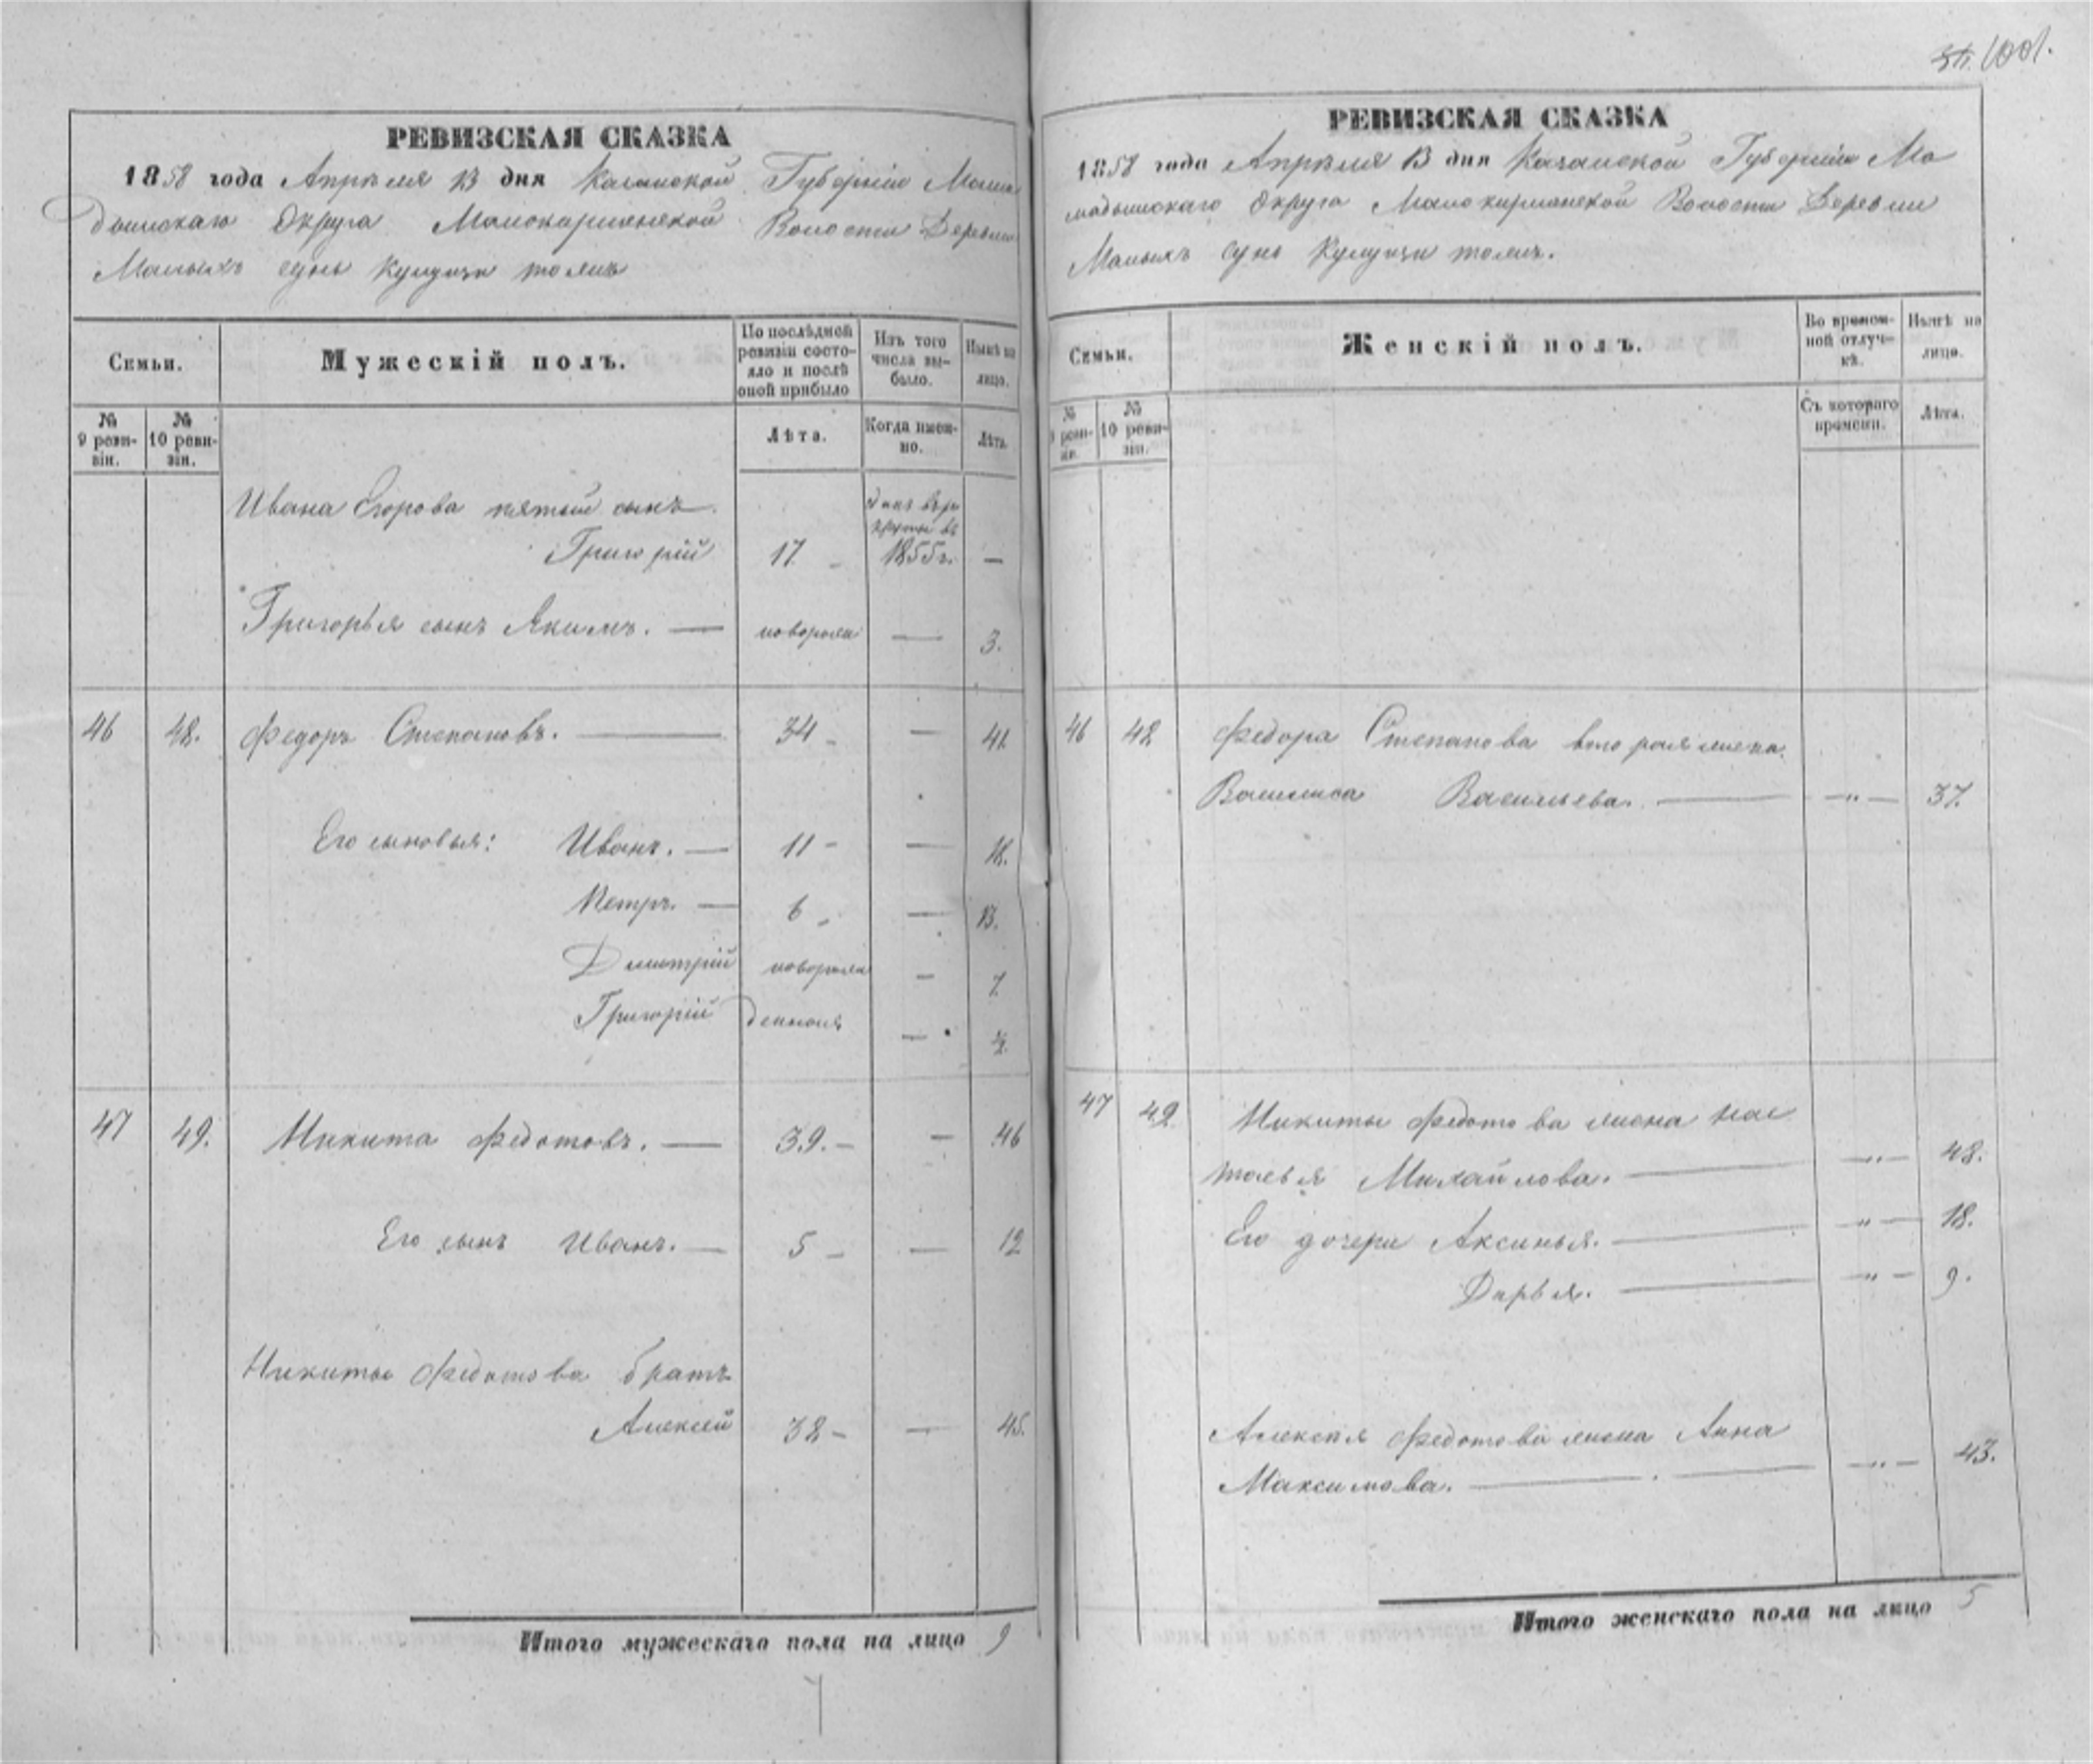 1001.
РЕВИЗСКАЯ СКАЗКА
1858 года Апрѣля 13 дня Казанской Губерніи Мама
дышскаго Округа Малокирменской Волости Деревни
Малыхъ Сунь
Семьи.
Мужескій полъ.
По послѣдней ревизіи состояло и послѣ оной прибыло
Изъ того числа выбыло.
Нынѣ на лицо.
№ 9 ревизіи.
№ 10 ревизіи.
Лѣта.
Когда именно.
Лѣта.
Ивана Егорова пятый сынъ
Григорій 17 1855г. —
Григорья сынъ Якимъ. — новорожд — 3.
46 48. Федоръ Степановъ. — 34 — 41.
Его сыновья: Иванъ. — 11 — 18.
Петръ. — 6 — 13.
Дмитрій новорожд — 7.
Григорій — ½.
47 49. Никита Федотовъ. — 39. — 46
Его сынъ Иванъ. — 5 — 12
Никиты Федотова братъ
Алексей 38 — 45.
Итого мужескаго пола на лицо 9
РЕВИЗСКАЯ СКАЗКА
1858 года Апрѣля 13 дня Казанской Губерніи Ма
мадышскаго Округа Малокирменской Волости Деревни
Малыхъ Сунь
Семьи.
Женскій полъ.
Во временной отлучкѣ.
Нынѣ на лицо.
№ 9 ревизіи.
№ 10 ревизіи.
Съ котораго времени.
Лѣта.
46 48 Федора Степанова вторая жена
Василиса Васильева. — „ — 37.
47 49 Никиты Федотова жена На
талья Михайлова. — „ — 48.
Его дочери Аксинья. — „ — 18.
Дарья. — „ — 9.
Алексѣя Федотова жена Анна
Максимова. — „ — 43.
Итого женскаго пола на лицо 5